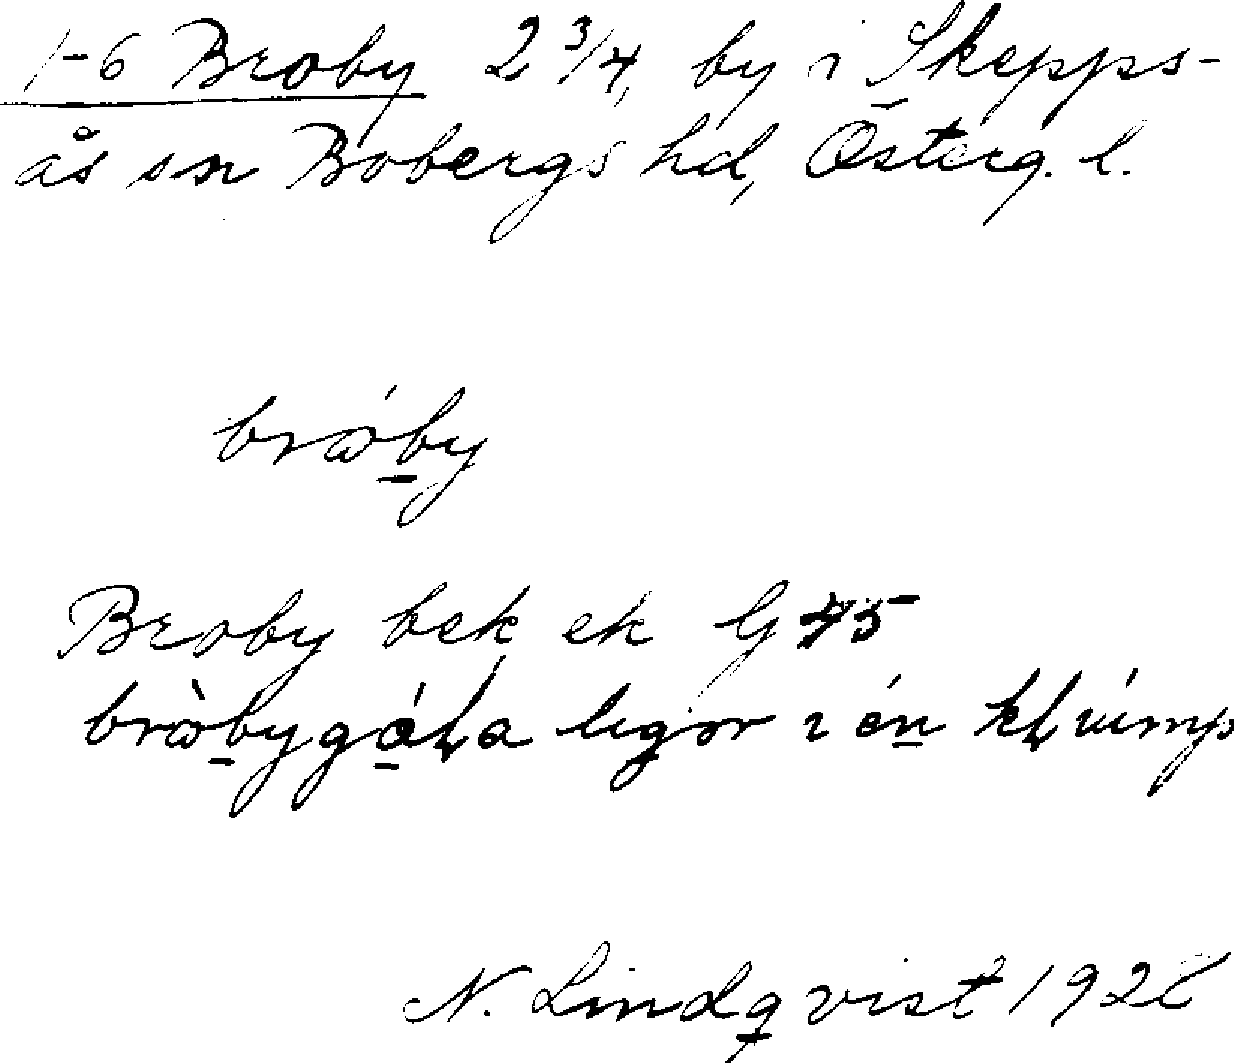 1-6 Broby 2 3/4, by i Skepps-
ås sn Bobergs hd, Österg. l.
bråby
Broby bek ek G 45
bròbygáɽa ligər i én kɽúmp
N. Lindqvist 1928